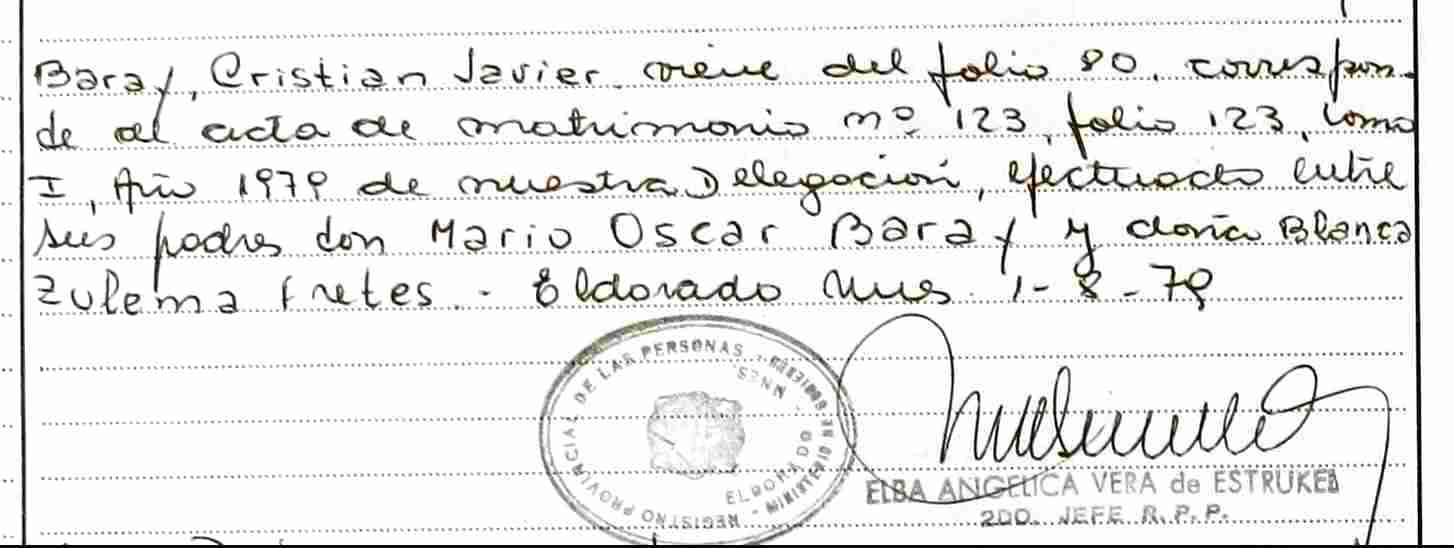 Baray, Cristian Javier. viene del folio 80. correspon-
de al acta de matrimonio nº 123, folio 123, tomo
I, Año 1979 de nuestra Delegación, efectuado entre
sus padres don Mario Oscar Baray y doña Blanca
Zulema Fretes.- Eldorado Mnes. 1-8-79
REGISTRO PROVINCIAL DE LAS PERSONAS - MINISTERIO DE GOBIERNO
ELDORADO - MNES.
ELBA ANGELICA VERA de ESTRUKEL
2DO. JEFE R. P. P.